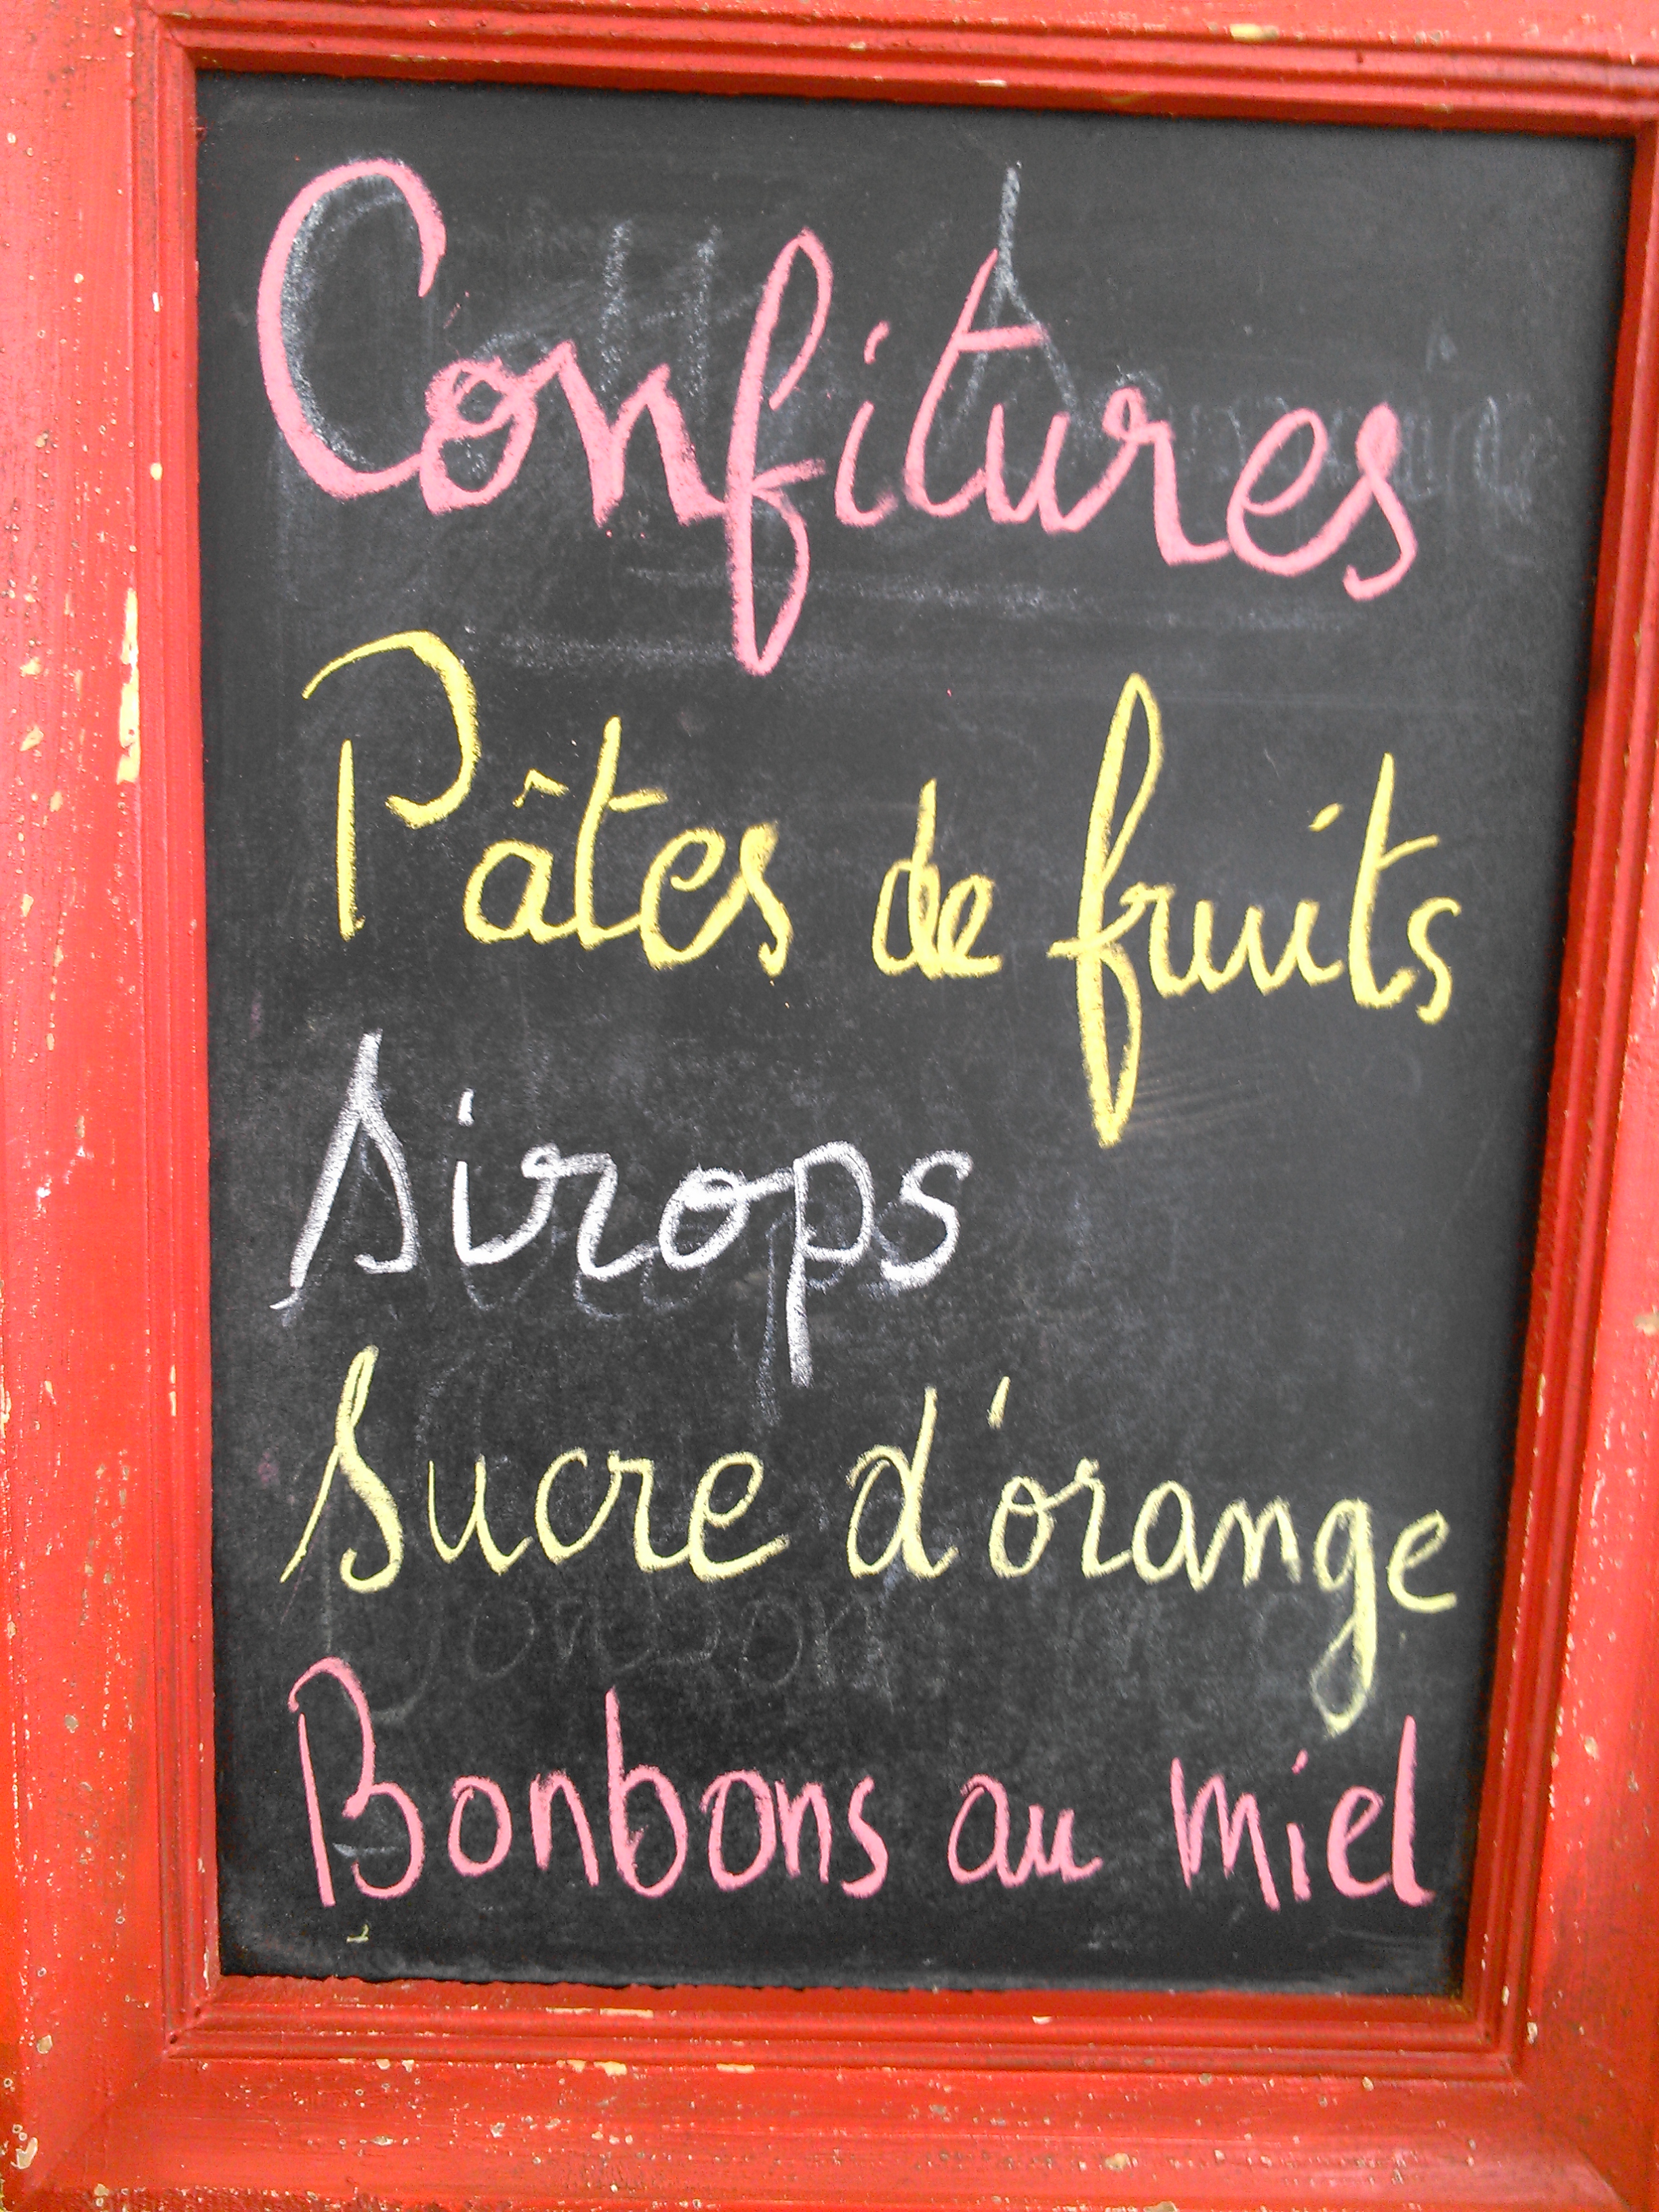 Confitures
Pâtes de fruits
Sirops
Sucre d'orange
Bonbons au miel